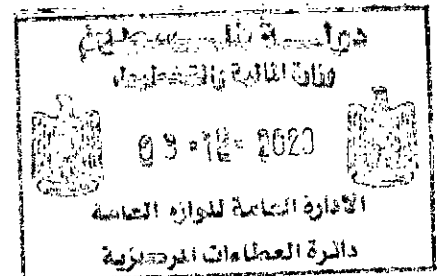 دولة فلسطين
وزارة المالية والتخطيط
09-12-2020
الادارة العامة للوازم العامة
دائرة العطاءات المركزية